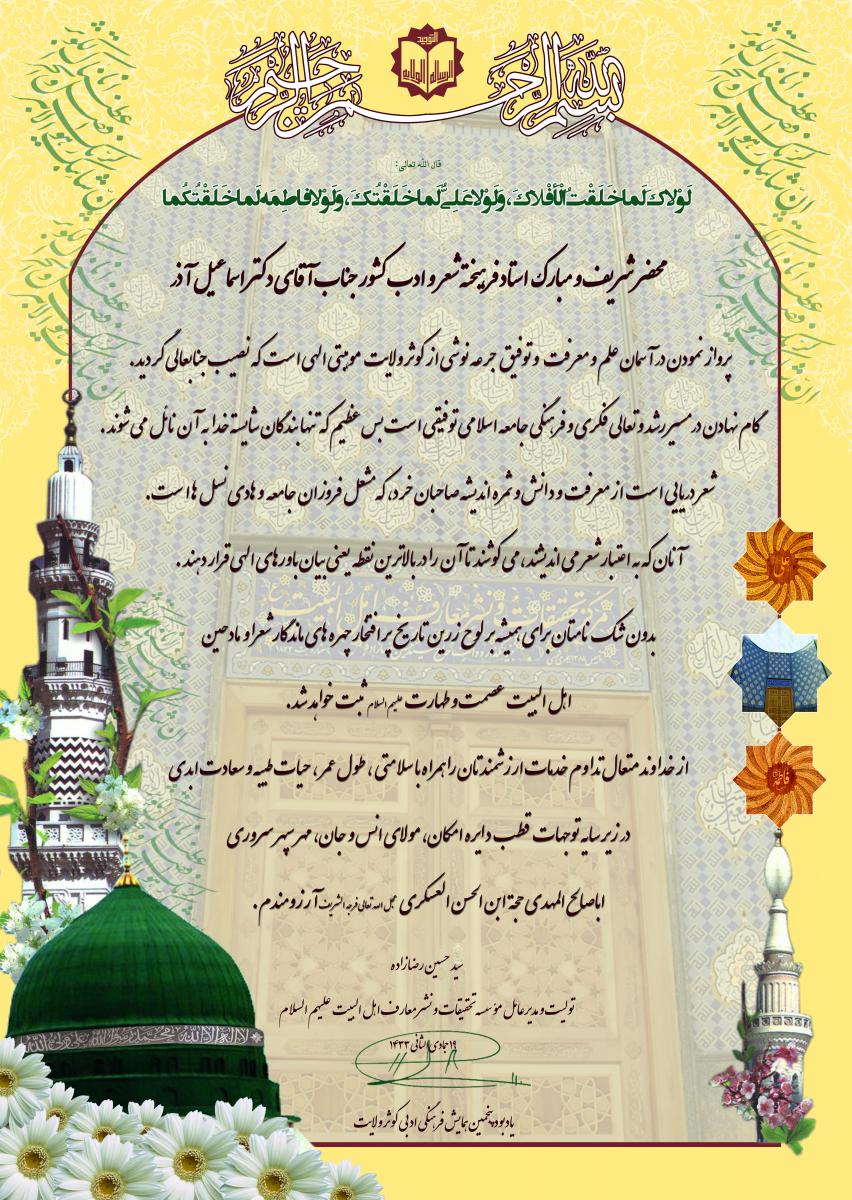 بسم الله الرحمن الرحیم
التوحید
الرسالة الولایة
قال الله تعالی:
لَوْلاكَ لَما خَلَقْتُ الْأَفْلاكَ، وَ لَوْلا عَلِیٌّ لَما خَلَقْتُكَ، وَ لَوْلا فاطِمَه لَما خَلَقْتُكُما
محضر شریف و مبارک استاد فرهیخته شعر و ادب کشور جناب آقای دکتر اسماعیل آذر
پرواز نمودن در آسمان علم و معرفت و توفیق جرعه نوشی از کوثر ولایت موهبتی الهی است که نصیب جنابعالی گردید.
گام نهادن در مسیر رشد و تعالی فکری و فرهنگی جامعه اسلامی توفیقی است بس عظیم که تنها بندگان شایسته خدا به آن نائل می شوند.
شعر دریایی است از معرفت و دانش و ثمره اندیشه صاحبان خرد، که مشعل فروزان جامعه و هادی نسل ها است.
آنان که به اعتبار شعر می اندیشند، می کوشند تا آن را در بالاترین نقطه یعنی بیان باورهای الهی قرار دهند.
بدون شک نامتان برای همیشه بر لوح زرین تاریخ پر افتخار چهره های ماندگار شعرا و مادحین
اهل البیت عصمت و طهارت علیهم السلام ثبت خواهد شد.
از خداوند متعال تداوم خدمات ارزشمندتان را همراه با سلامتی، طول عمر، حیات طیبه و سعادت ابدی
در زیر سایه توجهات قطب دایره امکان، مولای انس و جان، مهر سپهر سروری
اباصالح المهدی حجة ابن الحسن العسکری عجل الله تعالی فرجه الشریف آرزومندم.
سید حسین رضازاده
تولیت و مدیرعامل مؤسسه تحقیقات و نشر معارف اهل البیت علیهم السلام
۱۹ جمادی الثانی ۱۴۳۳
یادبود پنجمین همایش فرهنگی ادبی کوثر ولایت
علی
فاطمة